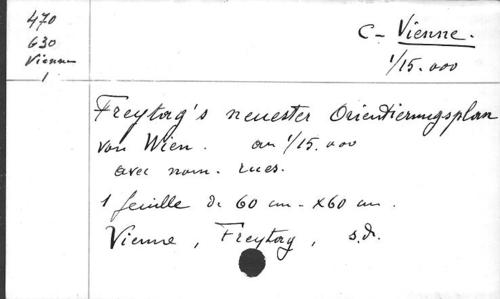 470
630
Vienne
1
C - Vienne.
1/15.000
Freytag's neuester Orientierungsplan
von Wien. au 1/15.000
avec nom. rues.
1 feuille de 60 cm - x60 cm.
Vienne, Freytag, s.d.